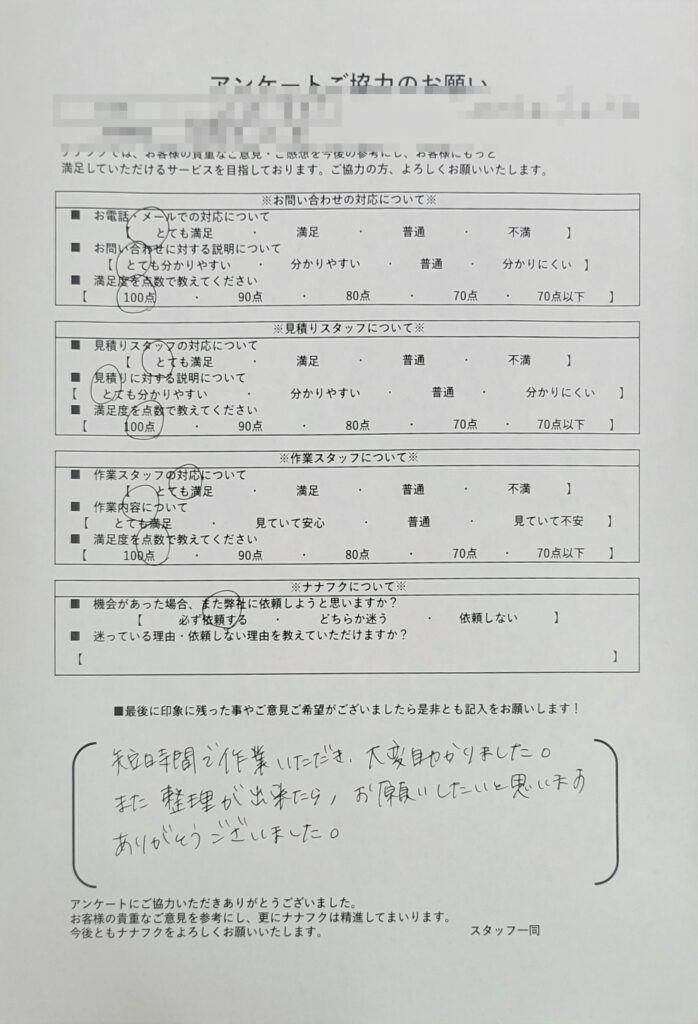 アンケートご協力のお願い
ナナフクでは、お客様の貴重なご意見・ご感想を今後の参考にし、お客様にもっと
満足していただけるサービスを目指しております。ご協力の方、よろしくお願いいたします。
※お問い合わせの対応について※
■ お電話・メールでの対応について
【 とても満足 ・ 満足 ・ 普通 ・ 不満 】
■ お問い合わせに対する説明について
【 とても分かりやすい ・ 分かりやすい ・ 普通 ・ 分かりにくい 】
■ 満足度を点数で教えてください
【 100点 ・ 90点 ・ 80点 ・ 70点 ・ 70点以下 】
※見積りスタッフについて※
■ 見積りスタッフの対応について
【 とても満足 ・ 満足 ・ 普通 ・ 不満 】
■ 見積りに対する説明について
【 とても分かりやすい ・ 分かりやすい ・ 普通 ・ 分かりにくい 】
■ 満足度を点数で教えてください
【 100点 ・ 90点 ・ 80点 ・ 70点 ・ 70点以下 】
※作業スタッフについて※
■ 作業スタッフの対応について
【 とても満足 ・ 満足 ・ 普通 ・ 不満 】
■ 作業内容について
【 とても満足 ・ 見ていて安心 ・ 普通 ・ 見ていて不安 】
■ 満足度を点数で教えてください
【 100点 ・ 90点 ・ 80点 ・ 70点 ・ 70点以下 】
※ナナフクについて※
■ 機会があった場合、また弊社に依頼しようと思いますか？
【 必ず依頼する ・ どちらか迷う ・ 依頼しない 】
■ 迷っている理由・依頼しない理由を教えていただけますか？
【 】
■最後に印象に残った事やご意見ご希望がございましたら是非とも記入をお願いします！
短時間で作業いただき、大変助かりました。
また整理が出来たら、お願いしたいと思います
ありがとうございました。
アンケートにご協力いただきありがとうございました。
お客様の貴重なご意見を参考にし、更にナナフクは精進してまいります。
今後ともナナフクをよろしくお願いいたします。 スタッフ一同